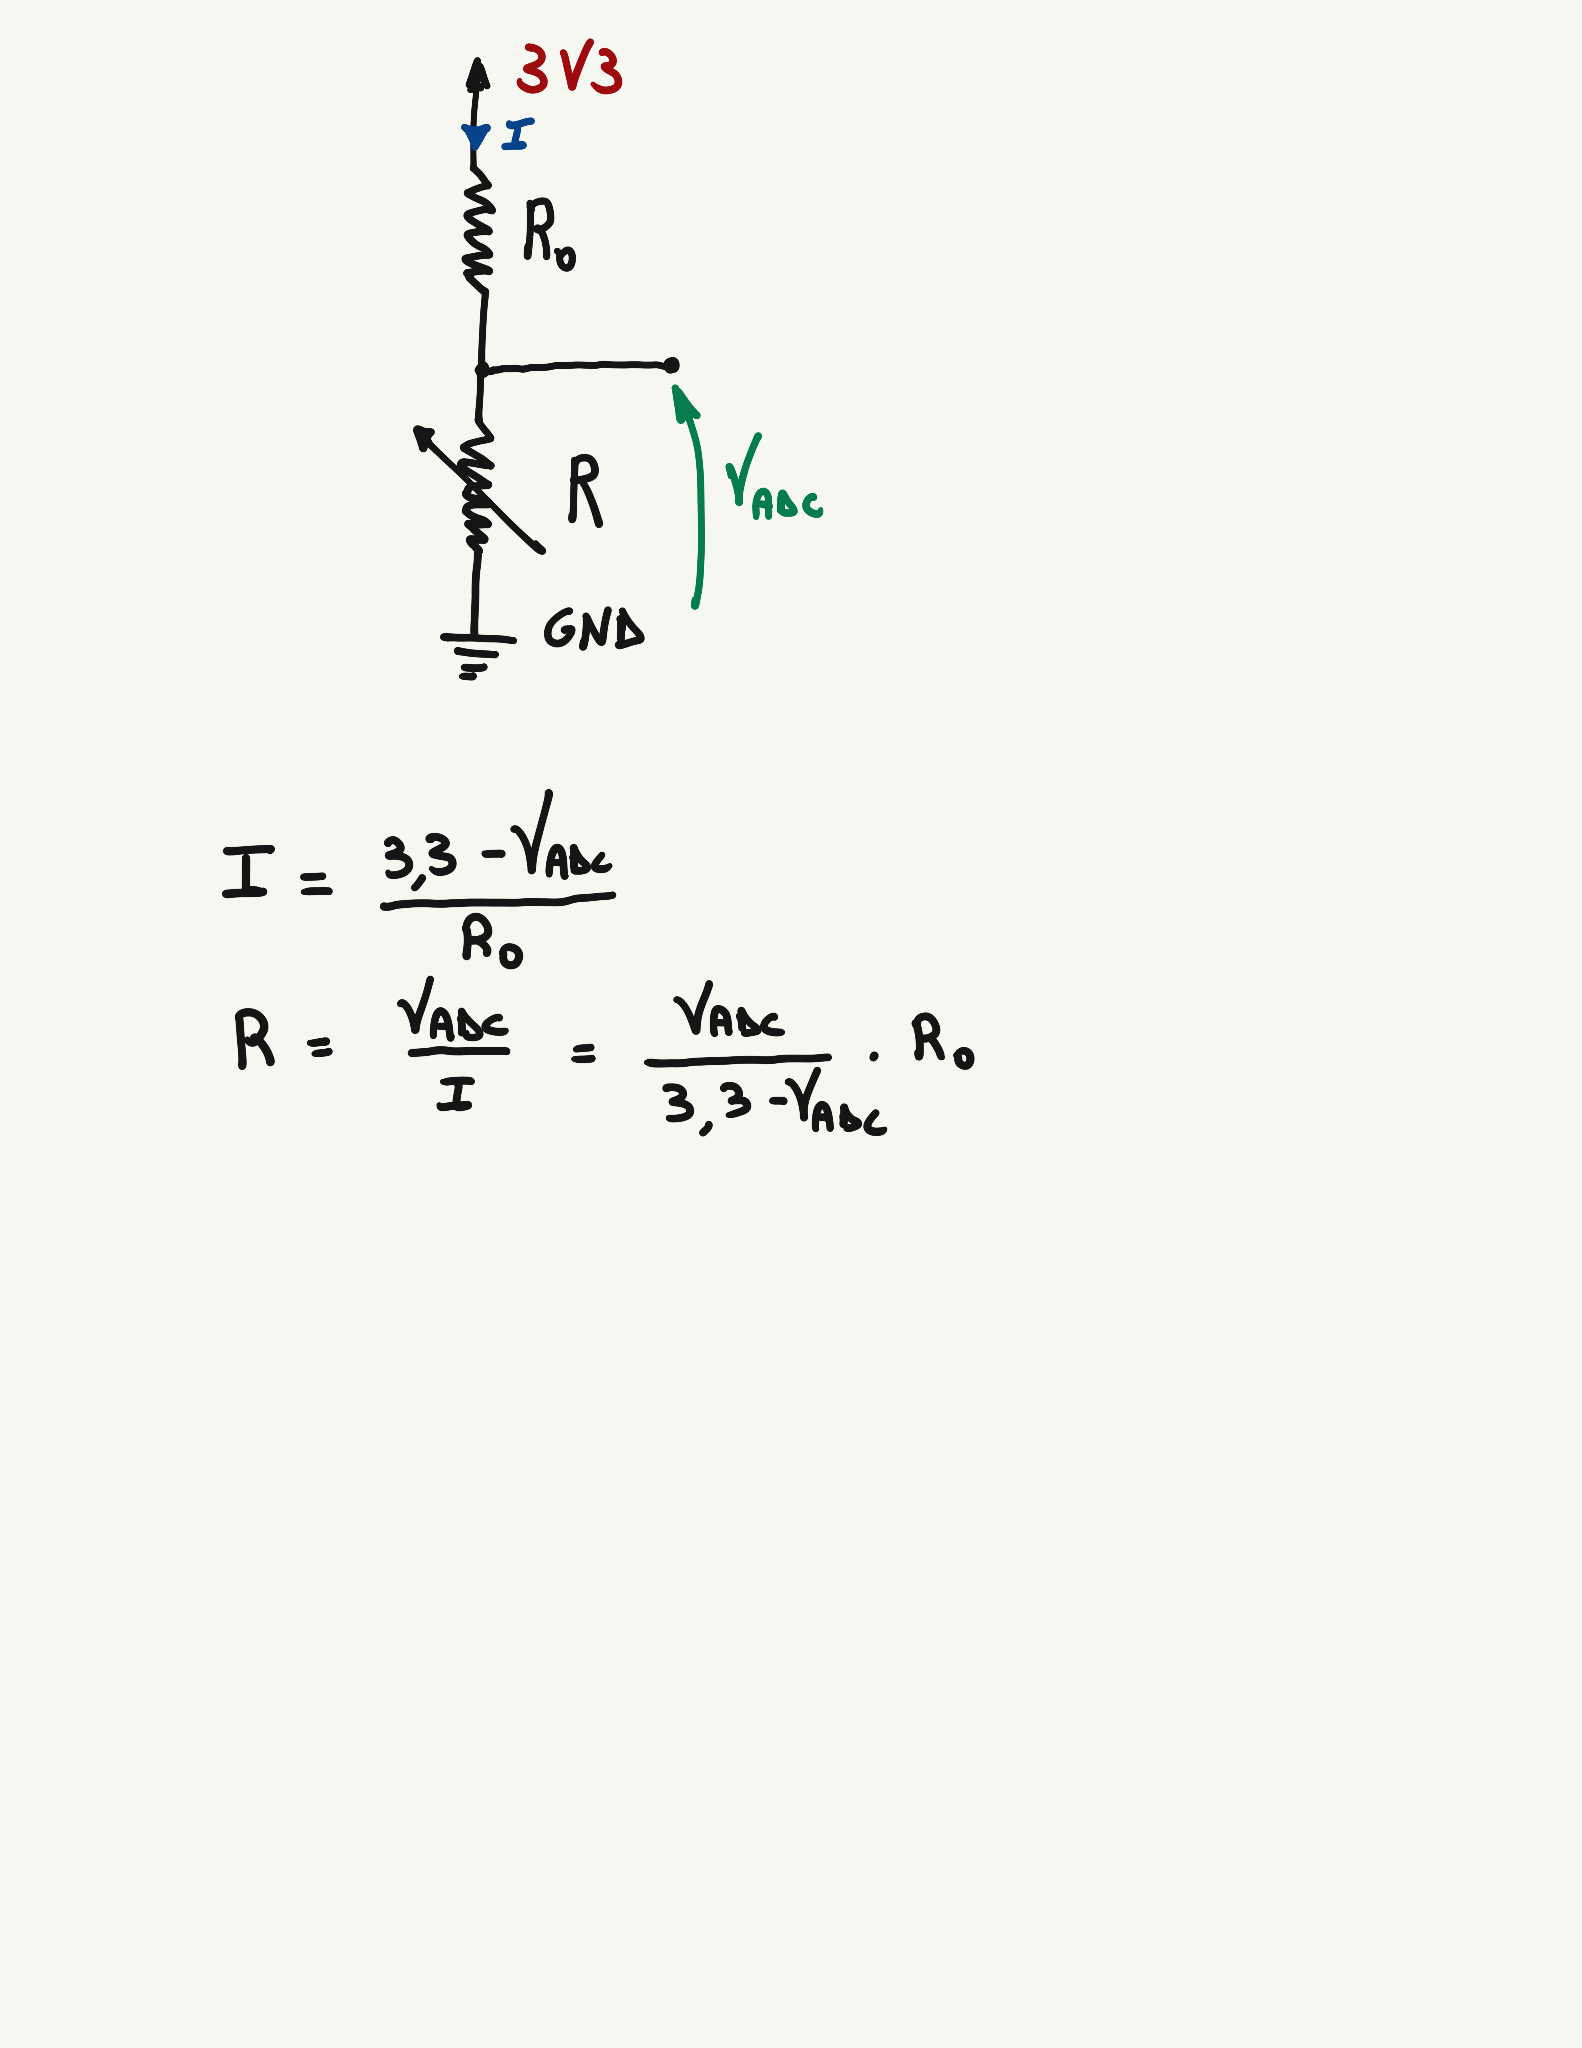 3V3
I
R₀
R
V_ADC
GND
I = \frac{3,3 - V_{ADC}}{R_0}
R = \frac{V_{ADC}}{I} = \frac{V_{ADC}}{3,3 - V_{ADC}} \cdot R_0